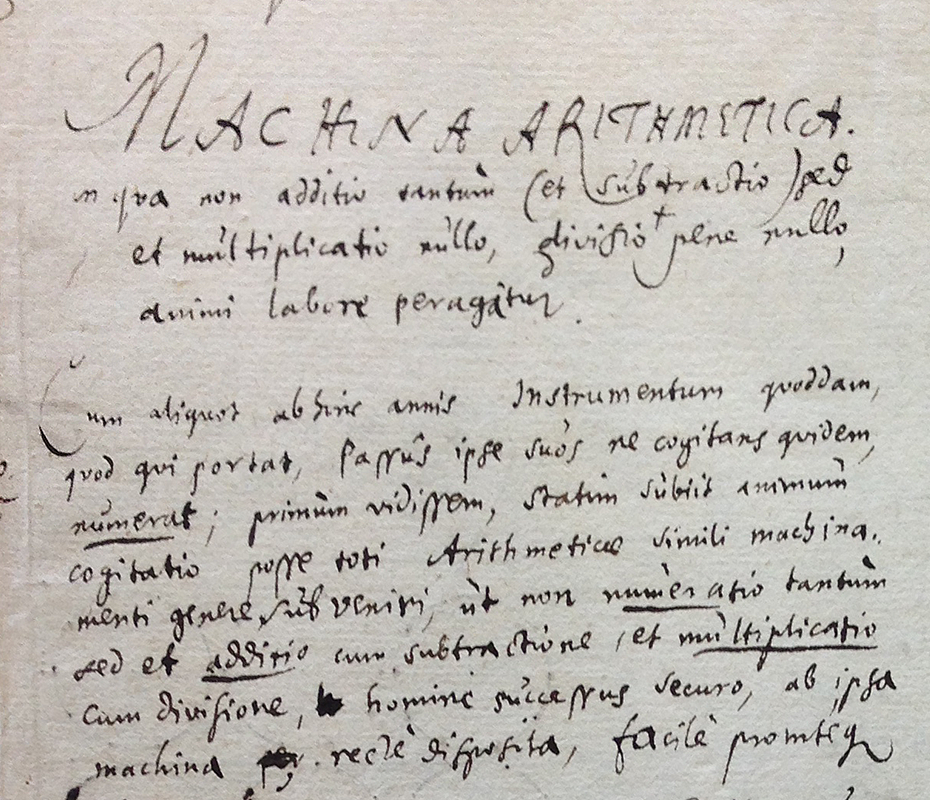 MACHINA ARITHMETICA.
in qva non additio tantùm (et subtractio) sed
et multiplicatio nullo, divisio pene nullo,
animi labore peragatur.
Cum aliquot abhinc annis Instrumentum quoddam,
quod qui portat, passus ipse suos ne cogitans quidem,
numerat; primùm vidissem, statim subiit animum
cogitatio posse toti Arithmeticae simili machina-
menti genere subveniri, ut non numeratio tantùm
sed et additio cum subtractione, et multiplicatio
cum divisione, homine successus securo, ab ipsa
machina rectè disposita, facilè promtéq